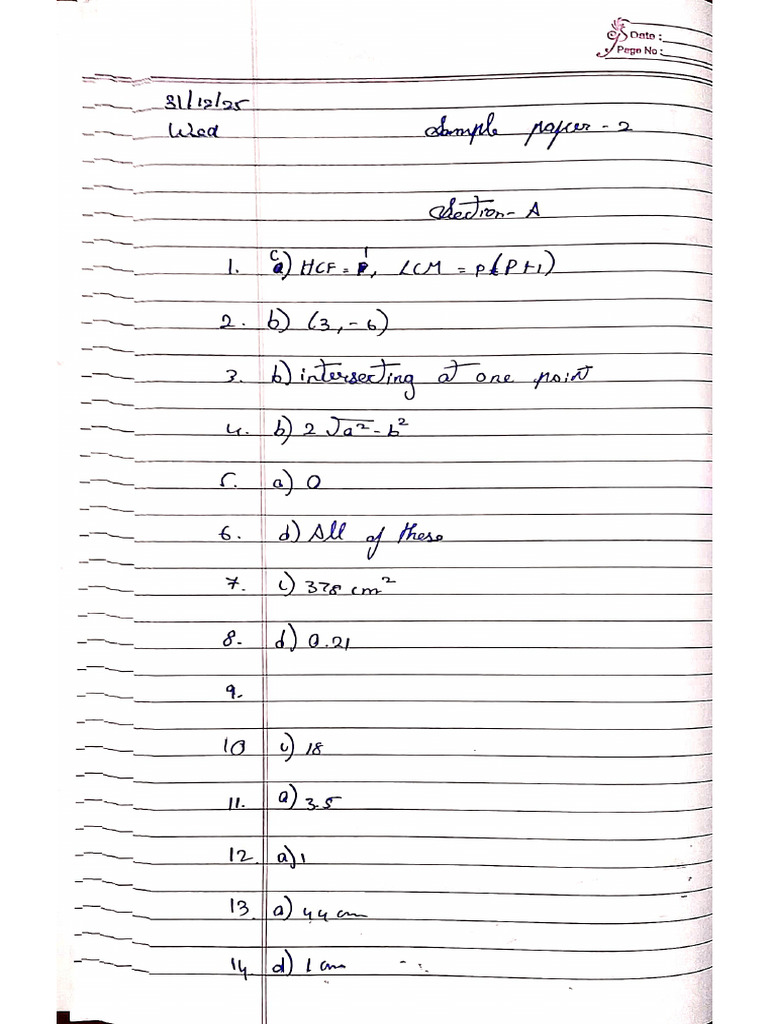 Date :
Page No :
31/12/25
Wed
Sample paper - 2
Section - A
1. c) HCF = 1, LCM = p(p+1)
2. b) (3, -6)
3. b) intersecting at one point
4. b) 2 √a² - b²
5. a) 0
6. d) All of these
7. c) 378 cm²
8. d) 0.21
9.
10 c) 18
11. a) 3.5
12. a) 1
13. a) 44 cm
14. d) 1 cm